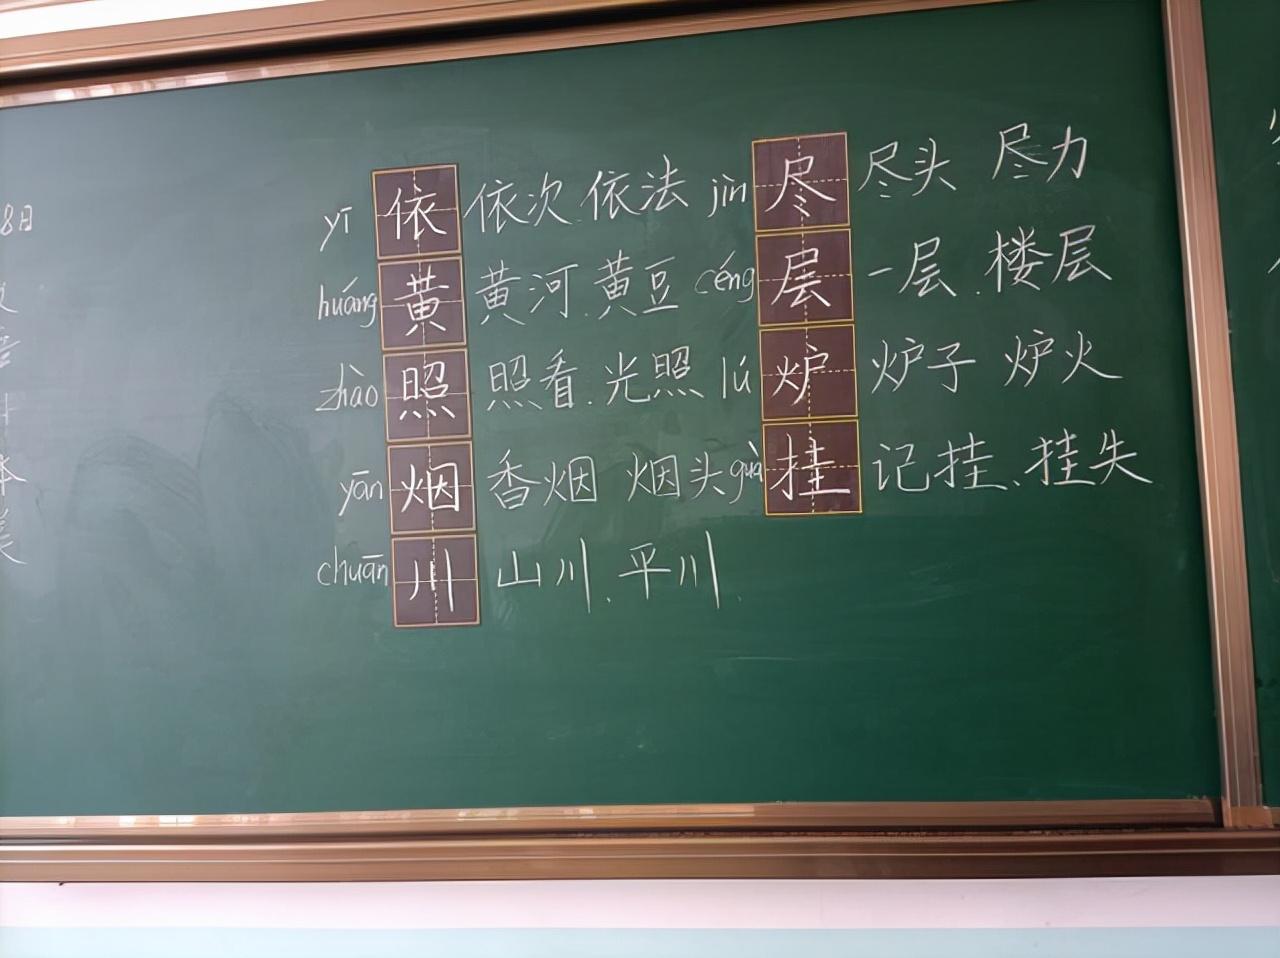 8日
yī 依 依次.依法 jìn 尽 尽头 尽力
huáng 黄 黄河.黄豆 céng 层 一层.楼层
zhào 照 照看.光照 lú 炉 炉子 炉火
yān 烟 香烟 烟头 guà 挂 记挂、挂失
chuān 川 山川、平川.